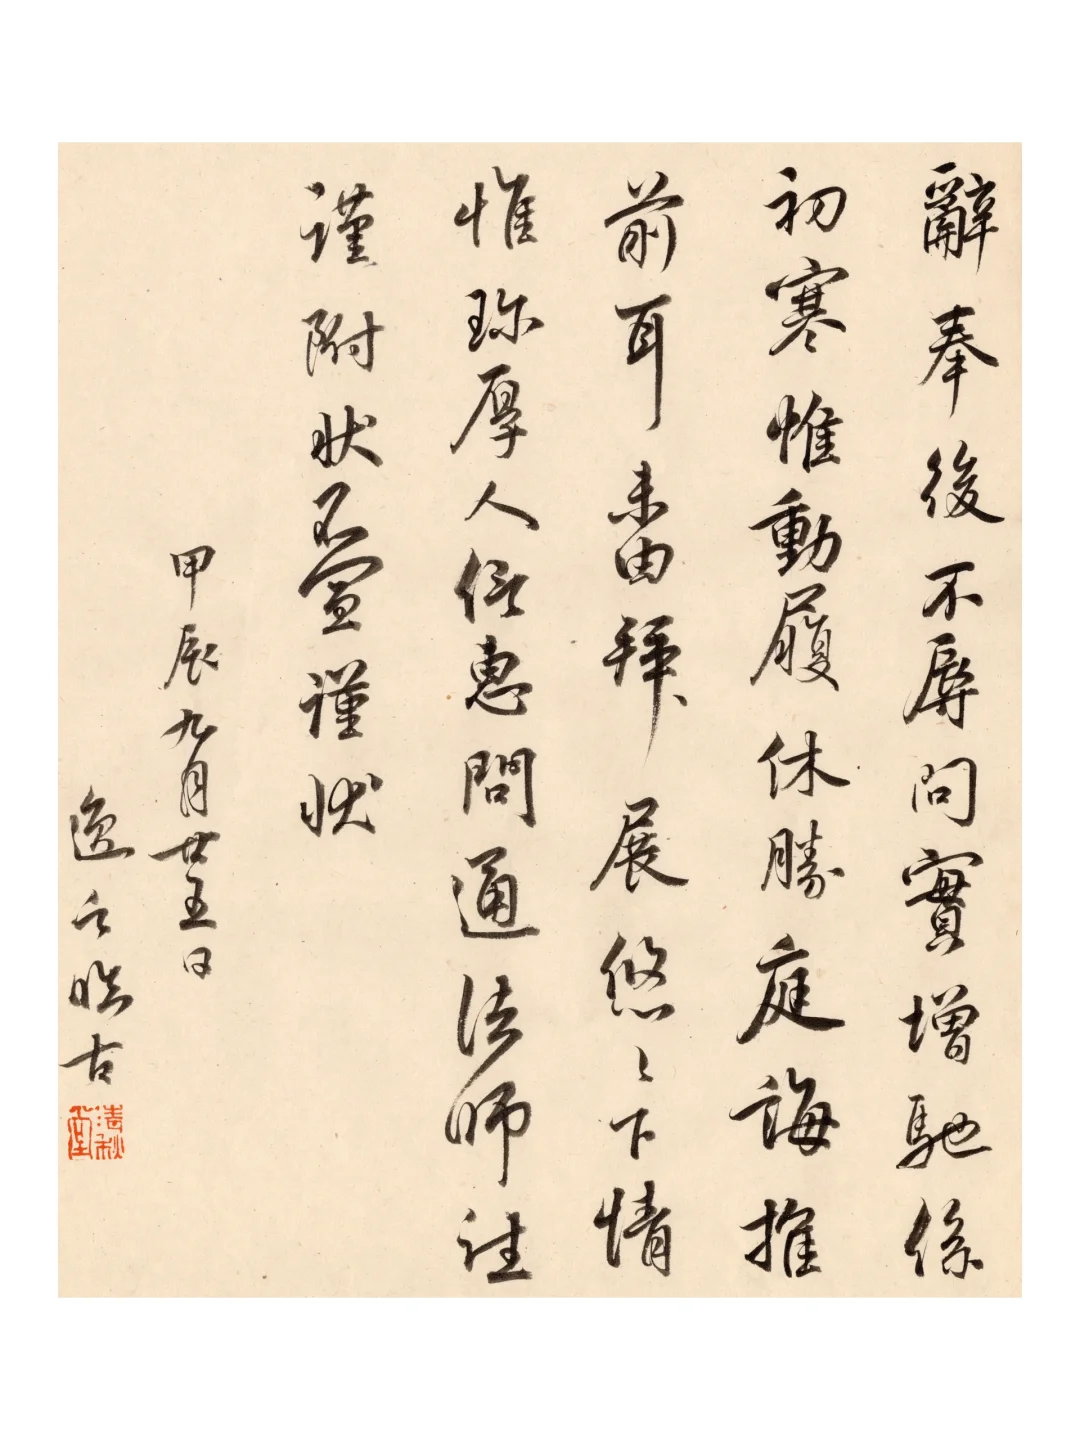 辭奉後不辱問實增馳係
初寒惟動履休勝庭誨推
前耳未由拜展悠〻下情
惟珎厚人信惠問通法師
謹附狀不宣謹狀
甲辰九月廿五日
逸之臨古
清秋堂